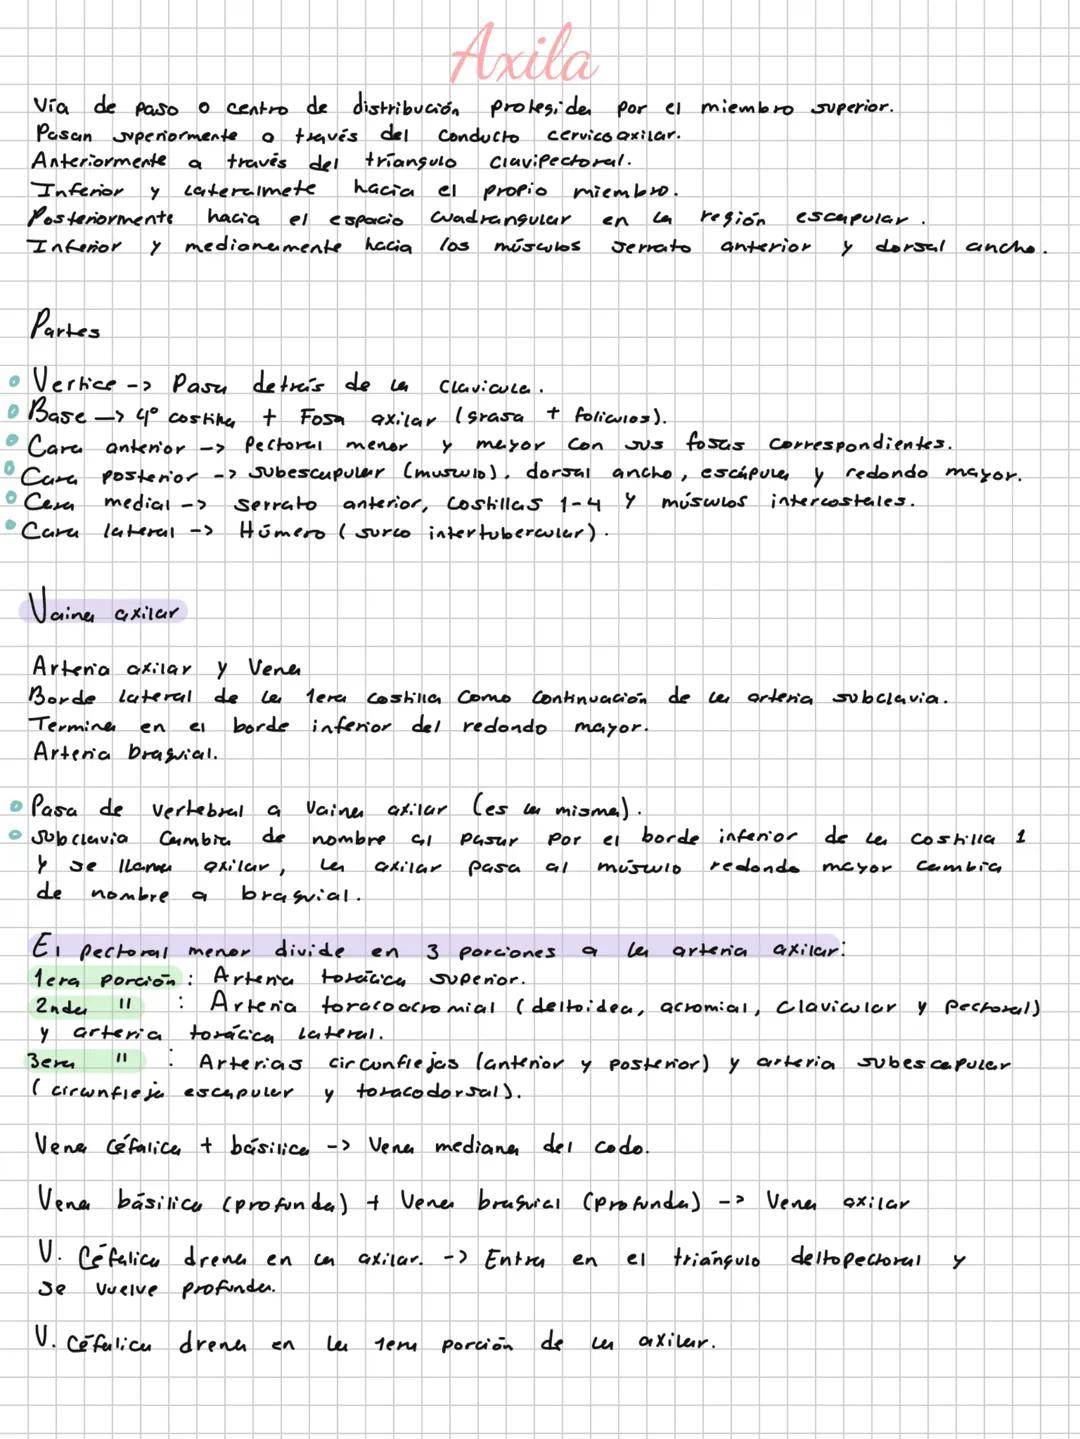 Axila
Vía de paso o centro de distribución protegida por el miembro superior.
Pasan superiormente a través del conducto cervicoaxilar.
Anteriormente a través del triangulo clavipectoral.
Inferior y lateralmete hacia el propio miembro.
Posteriormente hacia el espacio cuadrangular en la región escapular.
Inferior y medianamente hacia los músculos serrato anterior y dorsal ancho.
Partes
Vertice -> Pasa detrás de la clavicula.
Base -> 4° costilla + Fosa axilar (grasa + foliculos).
Cara anterior -> Pectoral menor y mayor con sus fosas correspondientes.
Cara posterior -> subescapular (musculo), dorsal ancho, escápula y redondo mayor.
Cara medial -> serrato anterior, costillas 1-4 y músculos intercostales.
Cara lateral -> Húmero (surco intertubercular).
Vaina axilar
Arteria axilar y Vena
Borde lateral de la 1era costilla como continuación de la arteria subclavia.
Termina en el borde inferior del redondo mayor.
Arteria braquial.
Pasa de vertebral a vaina axilar (es la misma).
subclavia cambia de nombre al pasar por el borde inferior de la costilla 1
y se llama axilar, la axilar pasa al músculo redondo mayor cambia
de nombre a braquial.
El pectoral menor divide en 3 porciones a la arteria axilar:
1era porción: Arteria torácica superior.
2nda " : Arteria toracoacromial (deltoidea, acromial, clavicular y pectoral)
y arteria torácica lateral.
3era " : Arterias circunflejas (anterior y posterior) y arteria subescapular
(circunfleja escapular y toracodorsal).
Vena céfalica + básilica -> Vena mediana del codo.
Vena básilica (profunda) + Vena braquial (profunda) -> Vena axilar
V. Céfalica drena en la axilar. -> Entra en el triángulo deltopectoral y
se vuelve profunda.
V. céfalica drena en la 1era porción de la axilar.